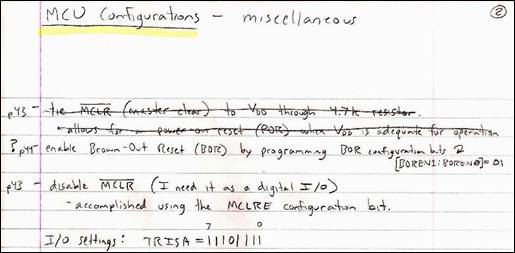 MCU Configurations - miscellaneous
②
p43 - tie MCLR (master clear) to VDD through 4.7k resistor.
- allows for a power-on reset (POR) when VDD is adequate for operation
? p44 - enable Brown-Out Reset (BOR) by programming BOR configuration bits
[BOREN1:BOREN0]=01
p43 - disable MCLR (I need it as a digital I/O)
- accomplished using the MCLRE configuration bit.
7 0
I/O settings: TRISA = 11101111